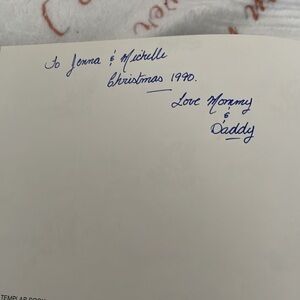 To Jenna & Michelle
Christmas 1990.
Love Mommy
&
Daddy
TEMPLAR